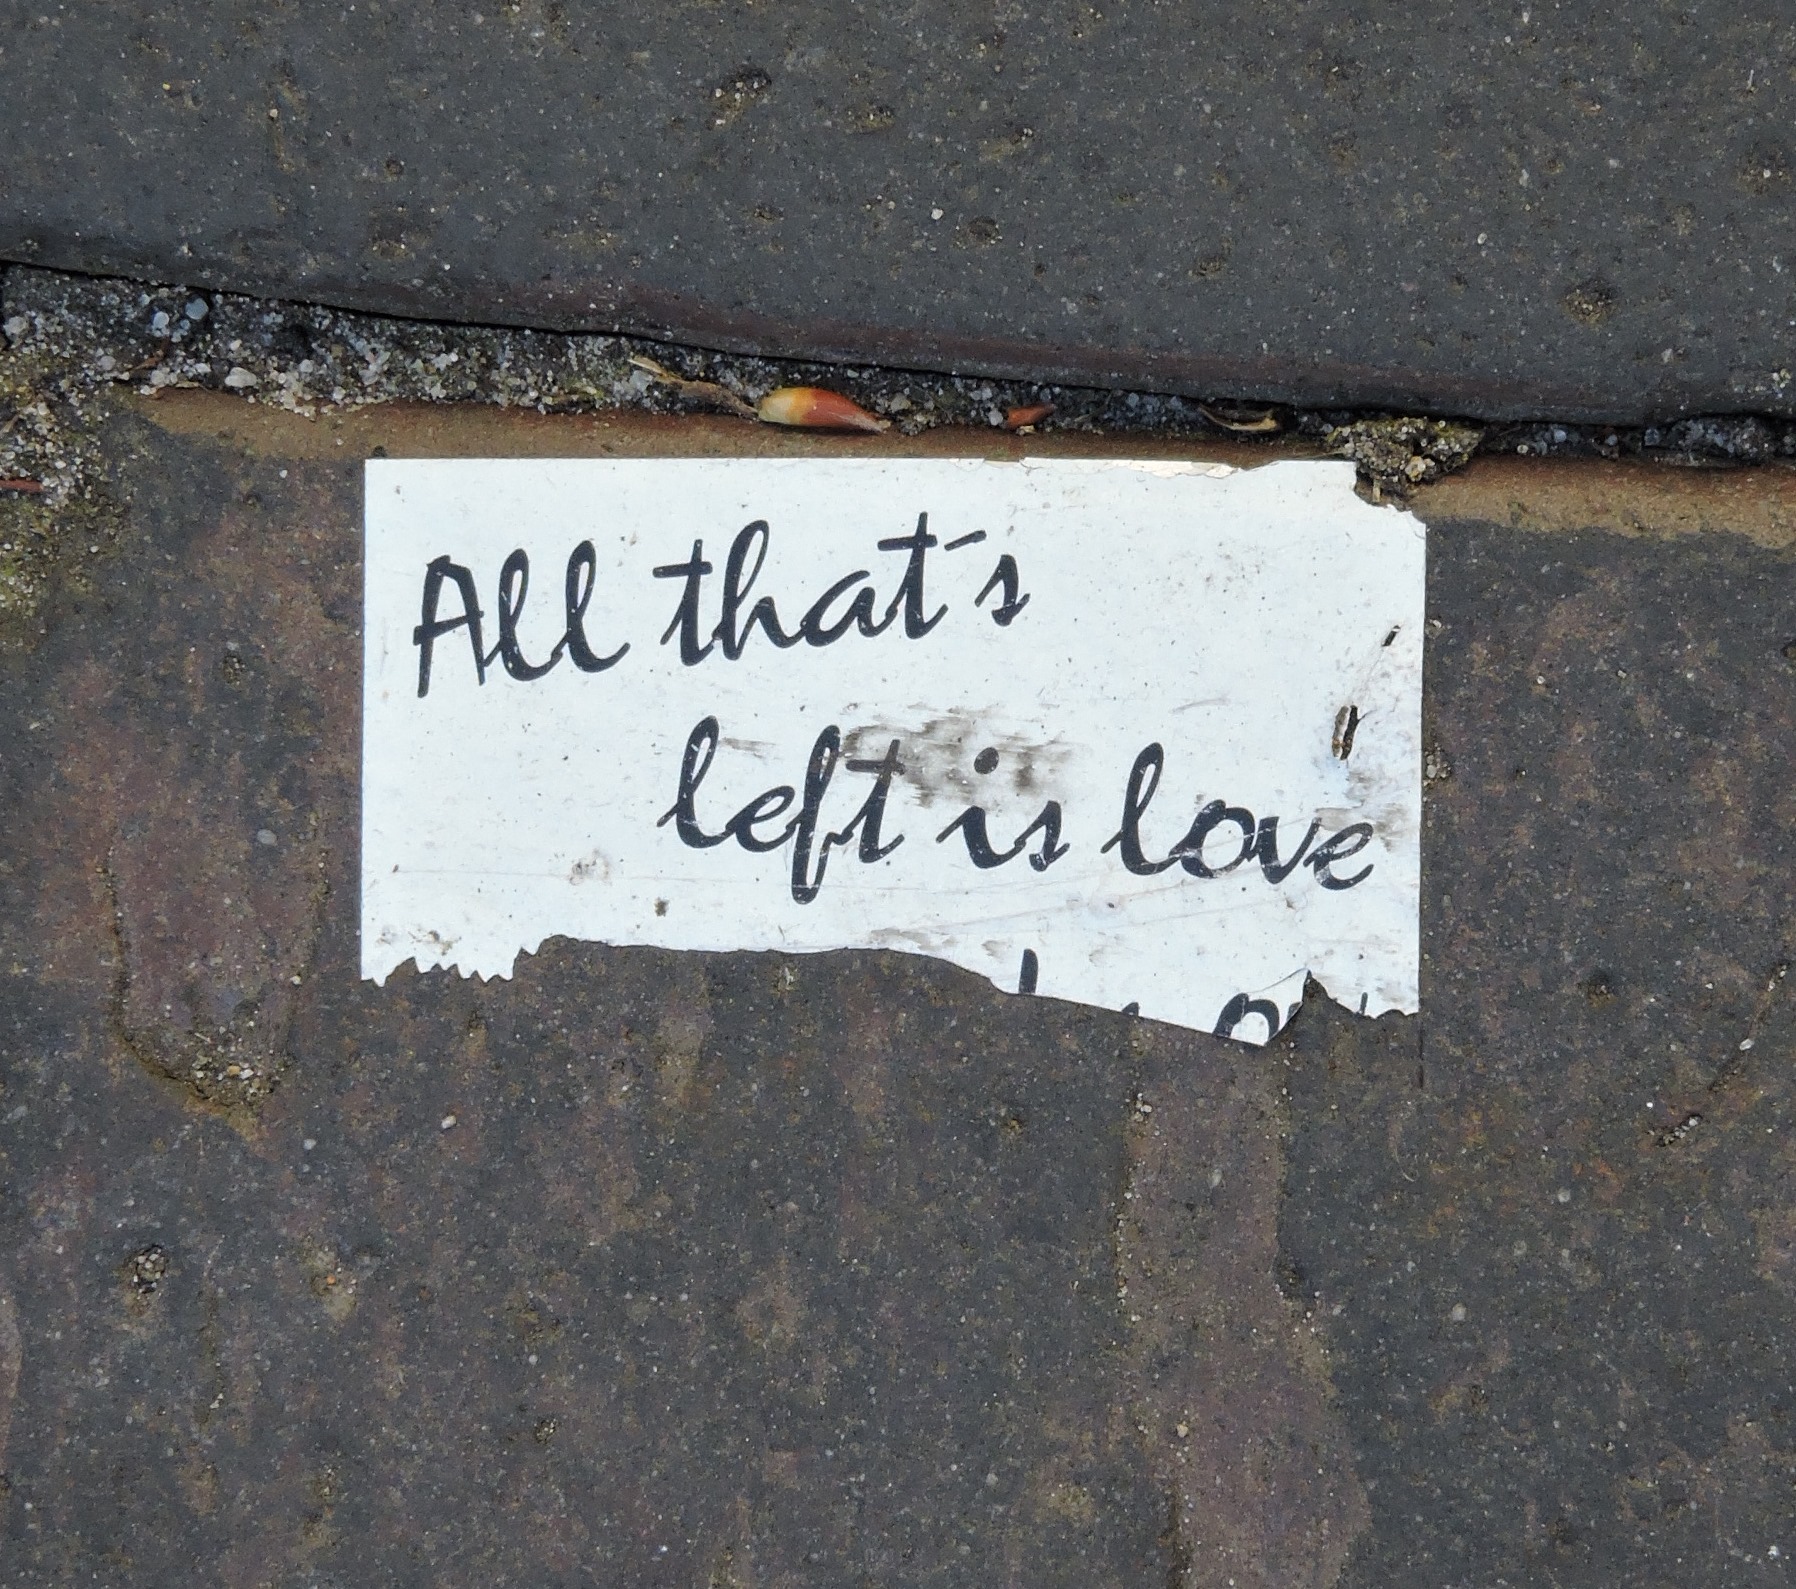 All that´s
left is love